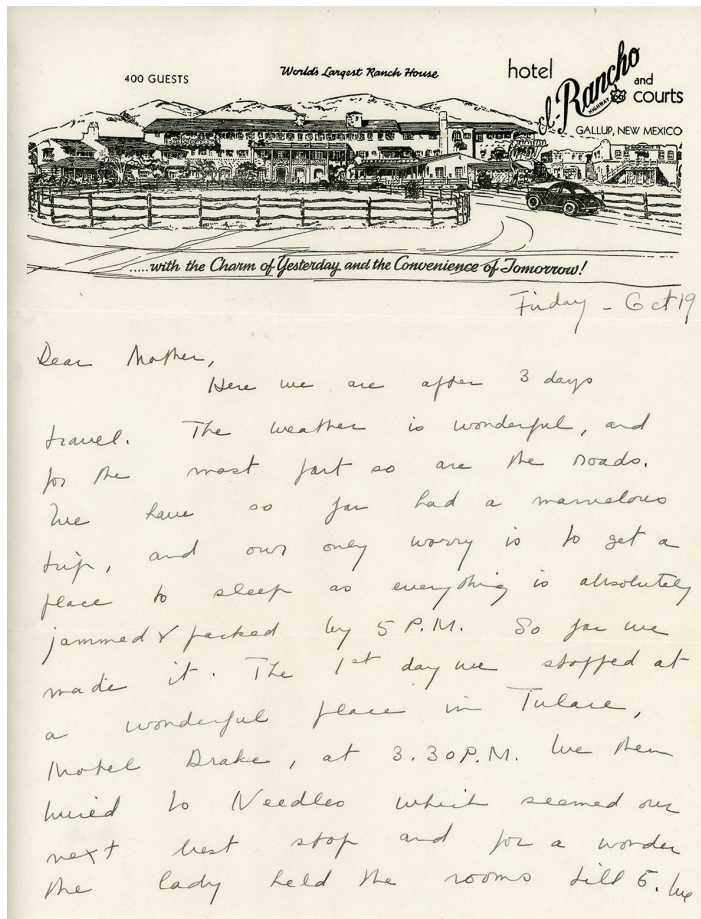 400 GUESTS
World's Largest Ranch House
hotel
El Rancho
HIGHWAY 66
and
courts
GALLUP, NEW MEXICO
.....with the Charm of Yesterday and the Convenience of Tomorrow!
Friday - Oct 19
Dear Mother,
Here we are after 3 days
travel. The weather is wonderful, and
for the most part so are the roads.
We have so far had a marvelous
trip, and our only worry is to get a
place to sleep as everything is absolutely
jammed & packed by 5 P.M. So far we
made it. The 1st day we stopped at
a wonderful place in Tulare,
Motel Drake, at 3.30 P.M. We then
wired to Needles which seemed our
next best stop and for a wonder
the lady held the rooms till 5. We